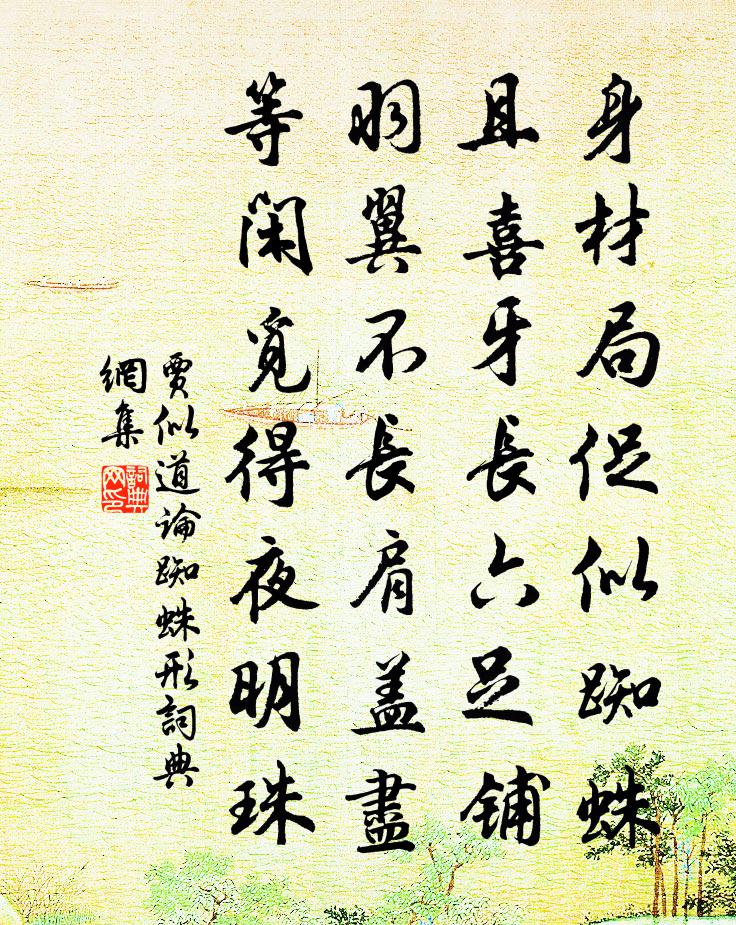 身材局促似踟蛛
且喜牙長六足铺
羽翼不長肩盖盡
等閑覓得夜明珠
賈似道論踟蛛形詞典
網集
詞典
网印